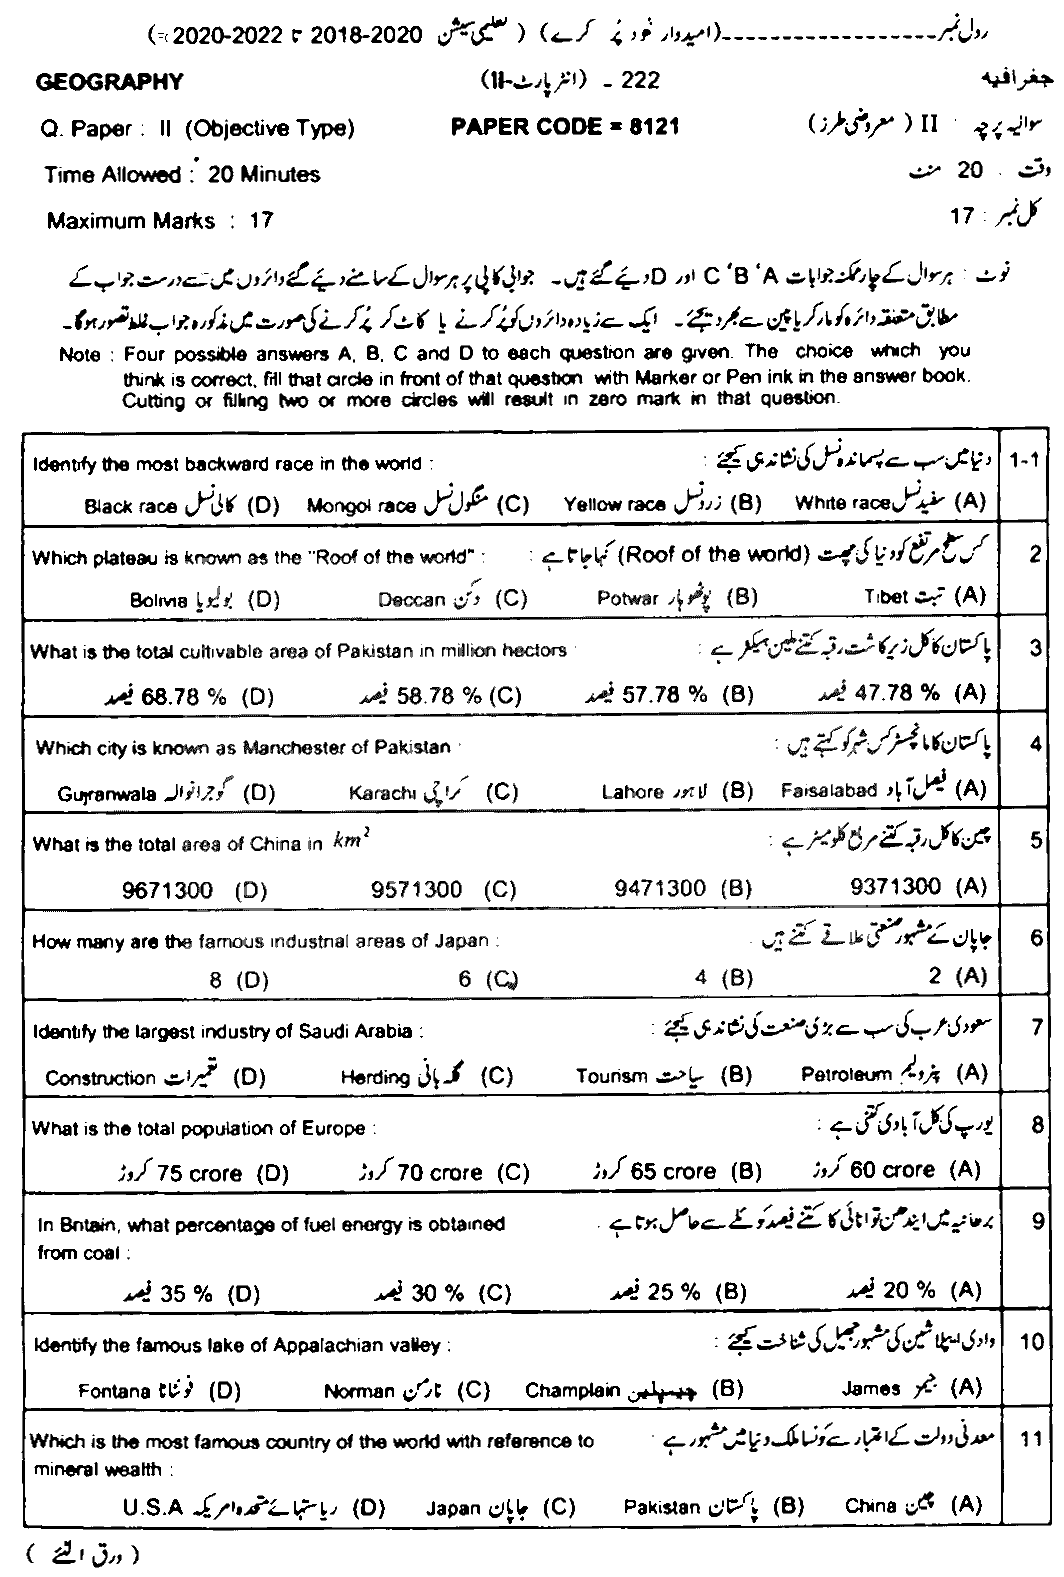 رول نمبر-------------------(امیدوار خود پُر کرے) ( تعلیمی سیشن 2020-2018 تا 2022-2020 )
GEOGRAPHY 222 - (انٹر پارٹ-II) جغرافیہ
Q. Paper : II (Objective Type) PAPER CODE = 8121 سوالیہ پرچہ : II ( معروضی طرز )
Time Allowed : 20 Minutes وقت : 20 منٹ
Maximum Marks : 17 کل نمبر : 17
نوٹ : ہر سوال کے چار ممکنہ جوابات A ' B ' C اور D دیے گئے ہیں۔ جوابی کاپی پر ہر سوال کے سامنے دیے گئے دائروں میں سے درست جواب کے
مطابق متعلقہ دائرہ کو مارکر یا پین سے بھر دیجئے۔ ایک سے زیادہ دائروں کو پُر کرنے یا کاٹ کر پُر کرنے کی صورت میں مذکورہ جواب غلط تصور ہوگا۔
Note : Four possible answers A, B, C and D to each question are given. The choice which you
think is correct, fill that circle in front of that question with Marker or Pen ink in the answer book.
Cutting or filling two or more circles will result in zero mark in that question.
Identify the most backward race in the world : دنیا میں سب سے پسماندہ نسل کی نشاندہی کیجئے : 1-1
Black race کالی نسل (D) Mongol race منگول نسل (C) Yellow race زرد نسل (B) White race سفید نسل (A)
Which plateau is known as the "Roof of the world" : کس سطح مرتفع کو دنیا کی چھت (Roof of the world) کہا جاتا ہے : 2
Bolivia بولیویا (D) Deccan دکن (C) Potwar پوٹھوہار (B) Tibet تبت (A)
What is the total cultivable area of Pakistan in million hectors : پاکستان کا کل زیر کاشت رقبہ کتنے ملین ہیکٹر ہے : 3
68.78 % فیصد (D) 58.78 % فیصد (C) 57.78 % فیصد (B) 47.78 % فیصد (A)
Which city is known as Manchester of Pakistan : پاکستان کا مانچسٹر کس شہر کو کہتے ہیں : 4
Gujranwala گوجرانوالہ (D) Karachi کراچی (C) Lahore لاہور (B) Faisalabad فیصل آباد (A)
What is the total area of China in km² چین کا کل رقبہ کتنے مربع کلومیٹر ہے : 5
9671300 (D) 9571300 (C) 9471300 (B) 9371300 (A)
How many are the famous industrial areas of Japan : جاپان کے مشہور صنعتی علاقے کتنے ہیں : 6
8 (D) 6 (C) 4 (B) 2 (A)
Identify the largest industry of Saudi Arabia : سعودی عرب کی سب سے بڑی صنعت کی نشاندہی کیجئے : 7
Construction تعمیرات (D) Herding گلہ بانی (C) Tourism سیاحت (B) Petroleum پٹرولیم (A)
What is the total population of Europe : یورپ کی کل آبادی کتنی ہے : 8
75 crore کروڑ (D) 70 crore کروڑ (C) 65 crore کروڑ (B) 60 crore کروڑ (A)
In Britain, what percentage of fuel energy is obtained برطانیہ میں ایندھن توانائی کا کتنے فیصد کوئلے سے حاصل ہوتا ہے : 9
from coal :
35 % فیصد (D) 30 % فیصد (C) 25 % فیصد (B) 20 % فیصد (A)
Identify the famous lake of Appalachian valley : وادی اپیلاشین کی مشہور جھیل کی شناخت کیجئے : 10
Fontana فونٹانا (D) Norman نارمن (C) Champlain چیمپلین (B) James جیمز (A)
Which is the most famous country of the world with reference to معدنی دولت کے اعتبار سے کونسا ملک دنیا میں مشہور ہے : 11
mineral wealth :
U.S.A ریاستہائے متحدہ امریکہ (D) Japan جاپان (C) Pakistan پاکستان (B) China چین (A)
( ورق الٹئے )